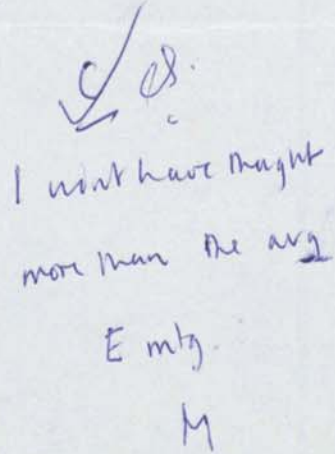 I wont have thought
more than the avg
E mtg.
M